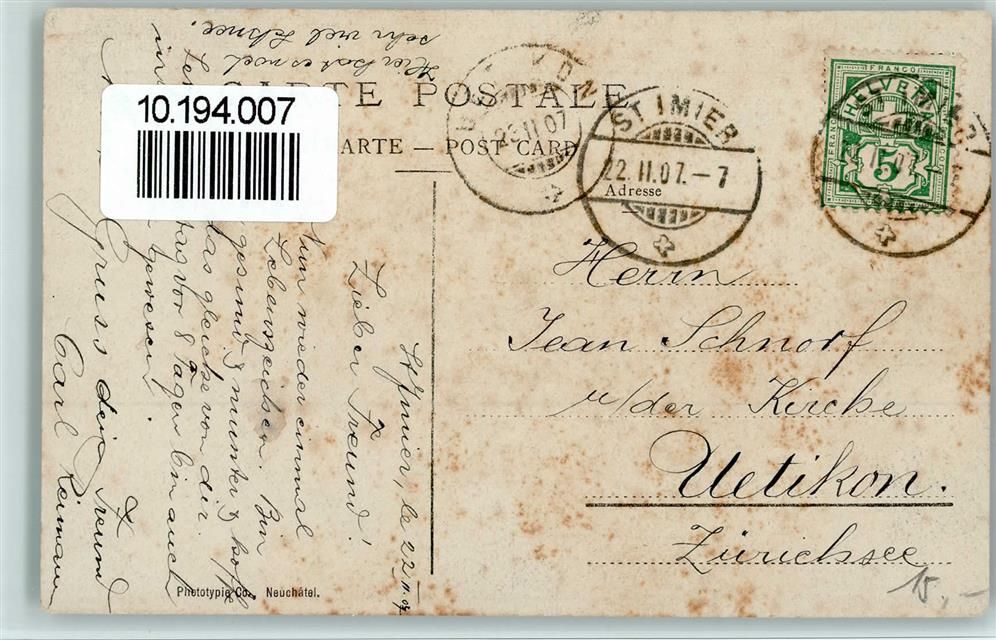 CARTE POSTALE
CARTE — POST CARD
10.194.007
UETIKON
23 II 07
ST IMIER
22. II. 07. – 7
FRANCO
HELVETIA
5
Adresse
Herrn
Jean Schnorf
a/der Kirche
Uetikon.
Zürichsee
15.–
St Imier, le 22.II.07
Lieber Freund!
Nun wieder einmal
Lebenszeichen. Bin
gesund & munter & hoffe
das gleiche von dir.
vor 8 Tagen bin auch
in
gewesen.
Gruss dein Freund
Carl Reimann
Hier hat es noch
sehr viel Schnee.
Phototypie Co., Neuchâtel.